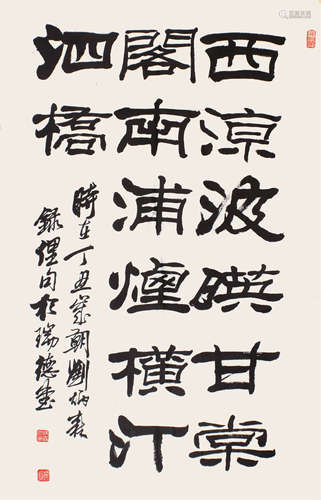 西涼波暎甘棠
閣南浦煙横汀
泗橋
時在丁丑歲朝劉炳森
録俚句於瑞德堂